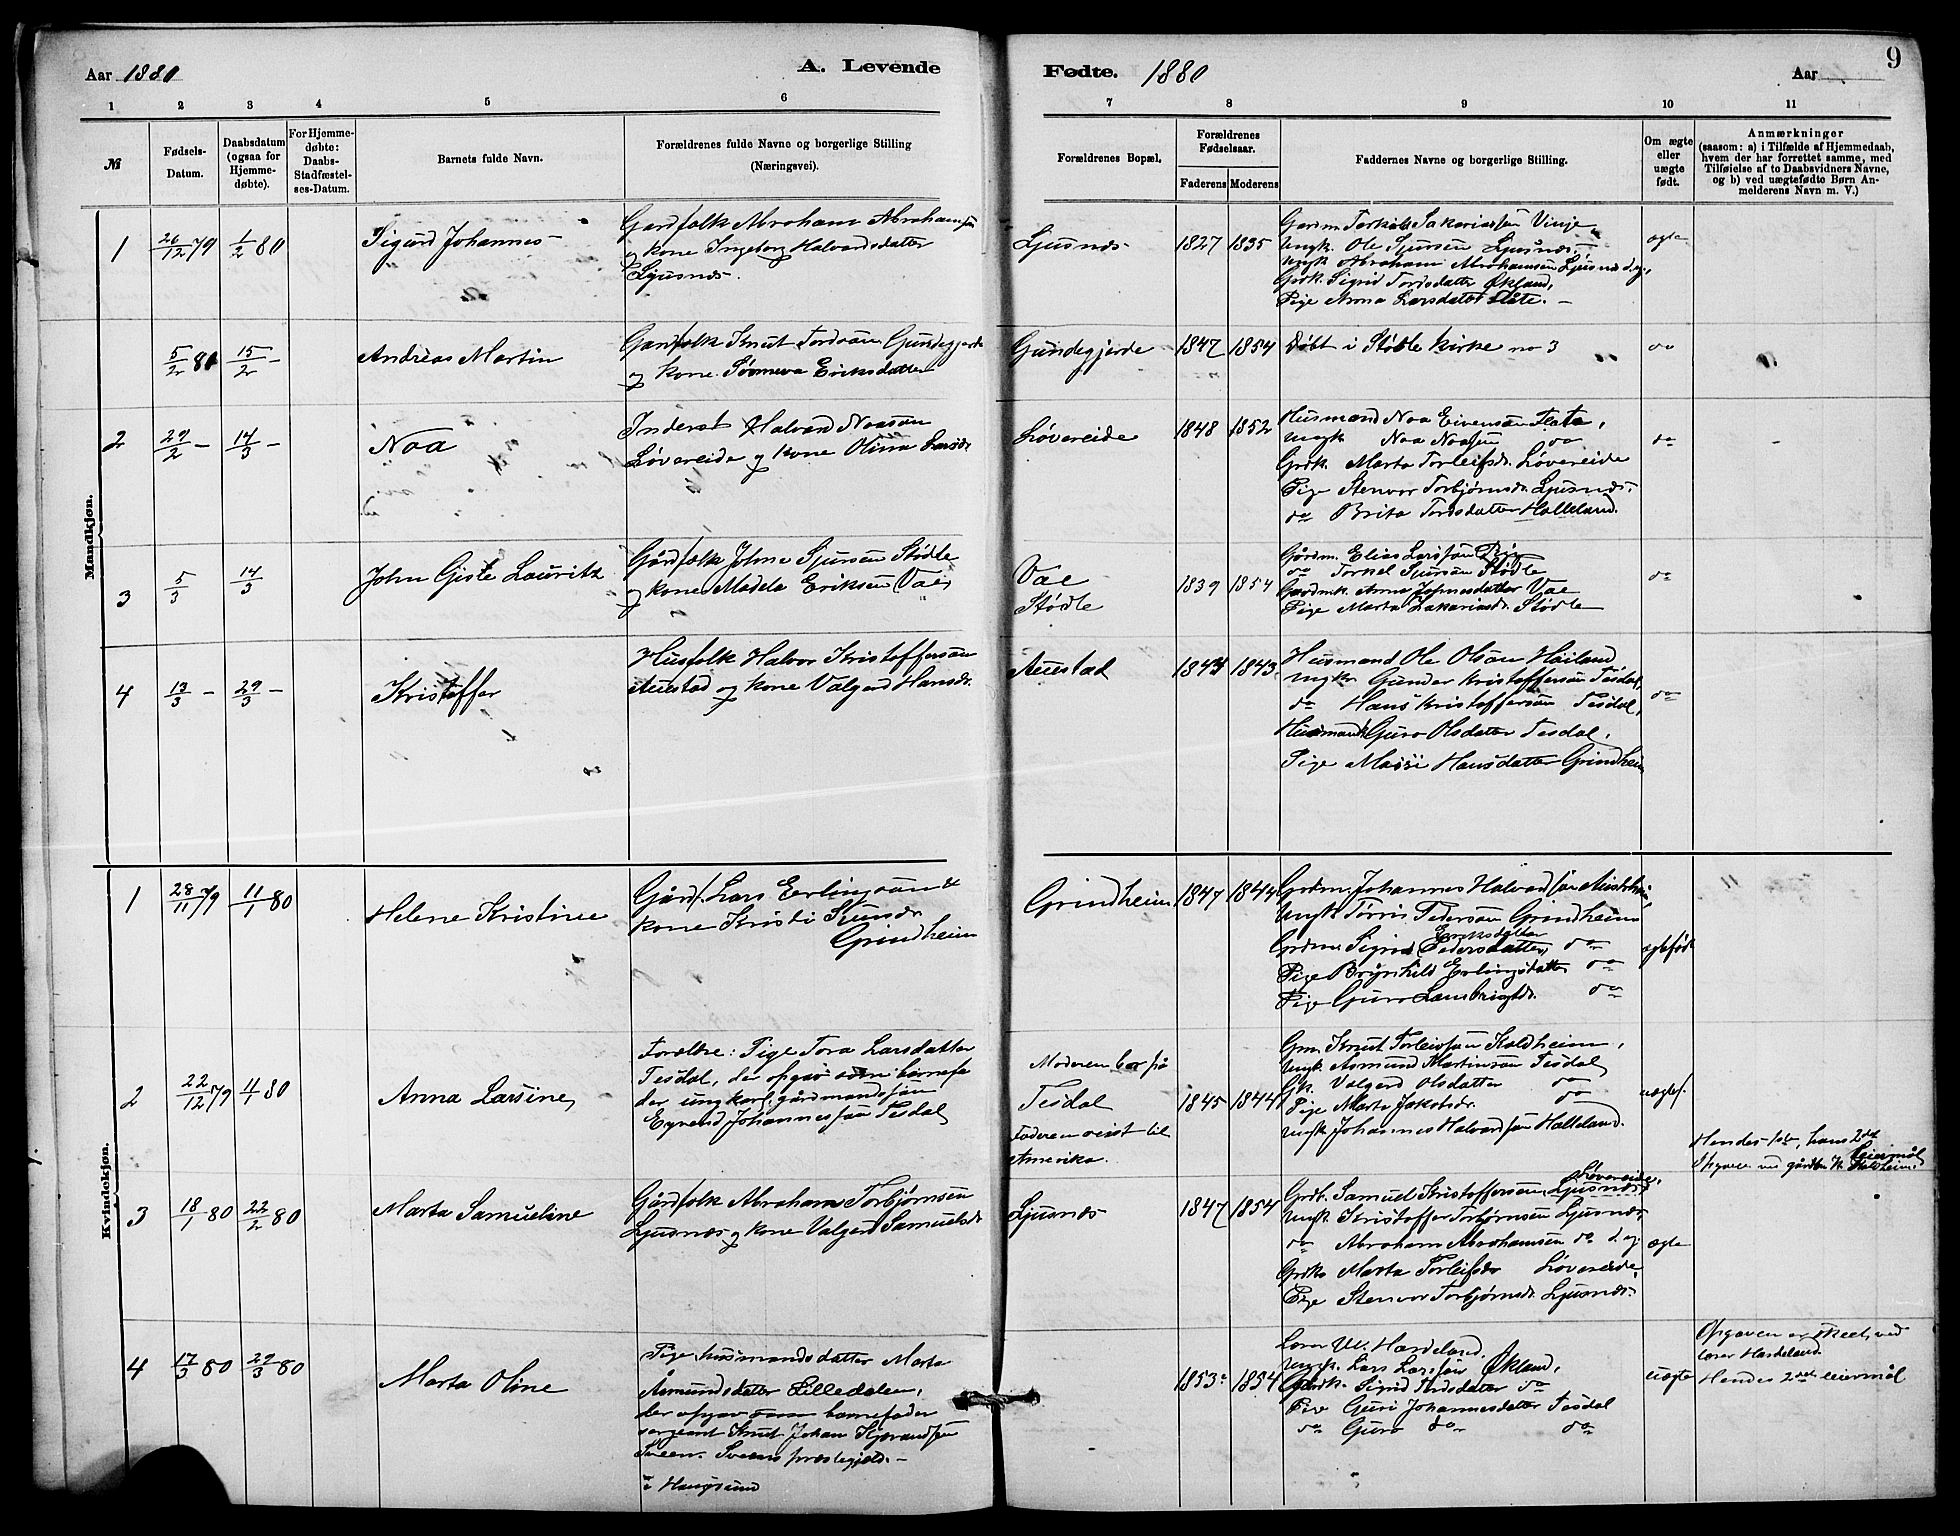 Aar 1880 A. Levende
Fødte. 1880 Aar 9
1 2 3 4 5 6
7 8 9 10 11
№
Fødsels-
Datum.
Daabsdatum
(ogsaa for
Hjemme-
døbte).
For Hjemme-
døbte:
Daabs-
Stadfæstel-
ses-Datum.
Barnets fulde Navn.
Forældrenes fulde Navne og borgerlige Stilling
(Næringsvei).
Forældrenes Bopæl.
Forældrenes
Fødselsaar.
Faderens Moderens
Faddernes Navne og borgerlige Stilling.
Om ægte
eller
uægte
født.
Anmærkninger
(saasom: a) i Tilfælde af Hjemmedaab,
hvem der har forrettet samme, med
Tilføielse af to Daabsvidners Navne,
og b) ved uægtefødte Børn An-
melderens Navn m. V.)
Mandkjøn.
1 26/12 79 1/2 80 Sigurd Johannes
Gardfolk Abraham Abrahamsen
og kone Ingeborg Halvardsdatter
Ljusnes.
Ljusnæs 1827 1835
Gardm. Torkild Sakariassen Vinje
Ungk. Ole Sjursen Ljusnæs
Ungk Abraham Abrahamsen Ljusnæs d.y.,
Grdk. Sigrid Tordsdatter Økland,
Pige Anna Larsdatter Flåte.
ægte
5/2 80 15/2 - Andreas Martin
Gardfolk Knut Tordsøn Gundegjerde
og kone Sønneva Eriksdatter
Gundegjerde 1847 1854 Døbt i Stødle kirke no 3 do
2 29/2 - 14/3 - Noa
Inderst Halvard Noasøn
Løvereide og kone Olina Larsdr
Løvereide 1848 1852
Husmand Noa Eivensøn Flata,
Ungk Noa Noasen do
Grdk. Marta Torleifsdr. Løvereide
Pige Stenvor Torbjørnsdr. Ljusnæs.
do Brita Tordsdatter Halleland.
do
3 5/3 14/3 John Giste Lauritz
Gårdfolk John Sjursen Stødle
og kone Madela Eriksen (Vae)
Vae
Stødle
1839 1854
Gårdm. Elias Larssøn
do Torkel Sjursøn Stødle
Gardmk. Anna Johnesdatter Vae
Pige Marta Zakariasdr. Stødle
do
4 13/3 - 29/3 - Kristoffer
Husfolk Halvor Kristoffersøn
Auestad og kone Valgerd Hansdr.
Auestad 1844 1843
Husmand Ole Olsøn Høiland
Ungk Gunder Kristoffersøn Tesdal,
do Hans Kristoffersøn Tesdal,
Husmandk Guro Olsdatter Tesdal,
Pige Massi Hansdatter Grindheim
do
Kvindekjøn.
1 28/11 79 11/1 80 Helene Kristine
Gårdf. Lars Erlingsøn &
kone Kristi Sjursdr.
Grindheim
Grindheim 1847 1844
Grdm. Johannes Halvardsøn
Ungk Torris Pedersøn Grindheim
Eriksdatter
Grdm. Sigrid (Pedersdatter) do
Pige Brynhild Erlingsdatter do
Pige Guro Lambrigtsdr. do
egtefødt
2 22/12 79 4/1 80 Anna Larsine
Forældre: Pige Tora Larsdatter
Tesdal, der opgav som barnefa
der ungkarl, gårdmandssøn
Eyvend Johannessøn Tesdal
Moderen bor på
Tesdal
Faderen reist til
Amerika.
1845 1844
Grm. Knut Torleivsøn Haldheim,
Ungk Asmund Martinsøn Tesdal
Gk. Valgerd Olsdatter do
Pige Marta Jakobsdr. do
Ungk Johannes Halvardsøn Halleland.
uægtef.
Hendes 1ste, hans 2det
leiermål
Opgaven ved gårdbr K Haldheim.
3 18/1 80 22/2 80 Marta Samueline
Gårdfolk Abraham Torbjørnsen
Ljusnæs og kone Valgerd Samuelsdr
Ljusnæs 1847 1854
Løvereide,
Grdb. Samuel Kristoffersen, Ljusnæs
Ungk. Kristoffer Torbjørnsen Ljusnæs,
do Abraham Abrahamsen do d. y.
Grdk. Marta Torleifsdr Løvereide,
Pige Stenvor Torbjørnsdr. Ljusnæs.
ægte
4 17/3 80 29/3 80 Marta Oline
Pige, husmandsdatter Marta
Åsmundsdatter Lilledalen,
der opgav som barnefader
sergeant Knut Johan
Sveen Sveens præstegjeld.
i Haugesund
1853 1854
Lærer Hardeland,
Ungk. Lars Larssøn Økland,
Gårdk. Sigrid Tordsdatter do
Pige Guri Johannesdatter Tesdal
do Guro do do
uægte
Opgaven er skeet ved
lærer Hardeland.
Hendes 2det leiermål